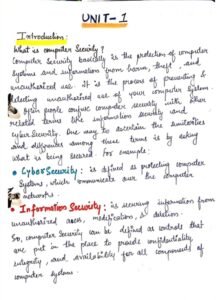 UNIT-1
Introduction:
What is computer Security?
Computer Security basically is the protection of computer
systems and information from harm, theft, and
unauthorized use. it is the process of preventing &
detecting unauthorized use of your computer system.
Often people confuse computer security with other
related terms like information security and
cyber security. One way to ascertain the similarities
and differences among these terms is by asking
what is being secured. for example:
• Cyber Security: is defined as protecting computer
systems, which communicate over the computer
networks.
• Information Security: is securing information from
unauthorized access, modification, & deletion.
So, computer Security can be defined as controls that
are put in the place to provide confidentiality,
integrity, and availability for all components of
computer systems.